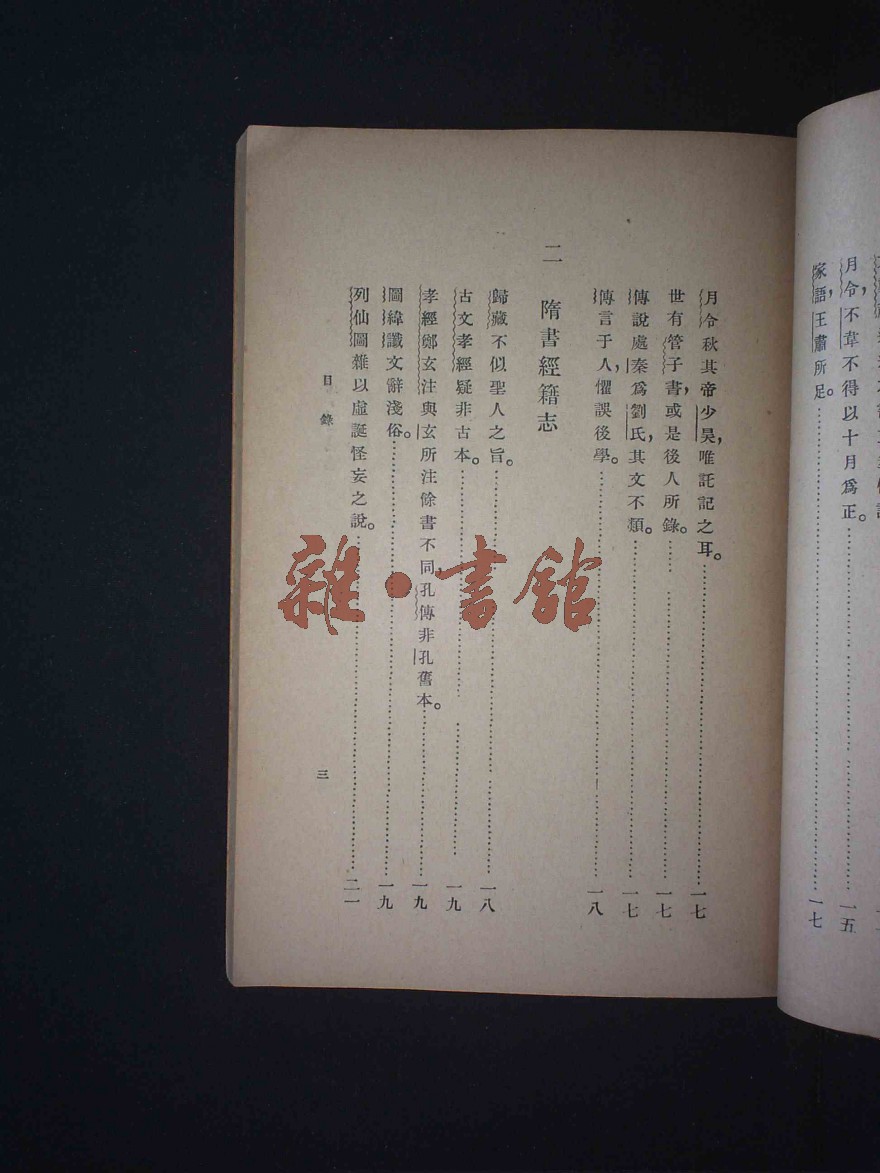 月令,不韋不得以十月爲正。……一五
家語,王肅所足。……一七
月令秋其帝少昊,唯託記之耳。……一七
世有管子書,或是後人所錄。……一七
傳說處秦爲劉氏,其文不類。……一七
傳言于人懼誤後學。……一八
二 隋書經籍志
歸藏不似聖人之旨。……一八
古文孝經疑非古本。……一九
孝經鄭玄注與玄所注餘書不同,孔傳非孔舊本。……一九
圖緯讖文辭淺俗。……一九
列仙圖雜以虛誕怪妄之說。……二一
目錄
三
雜·書館